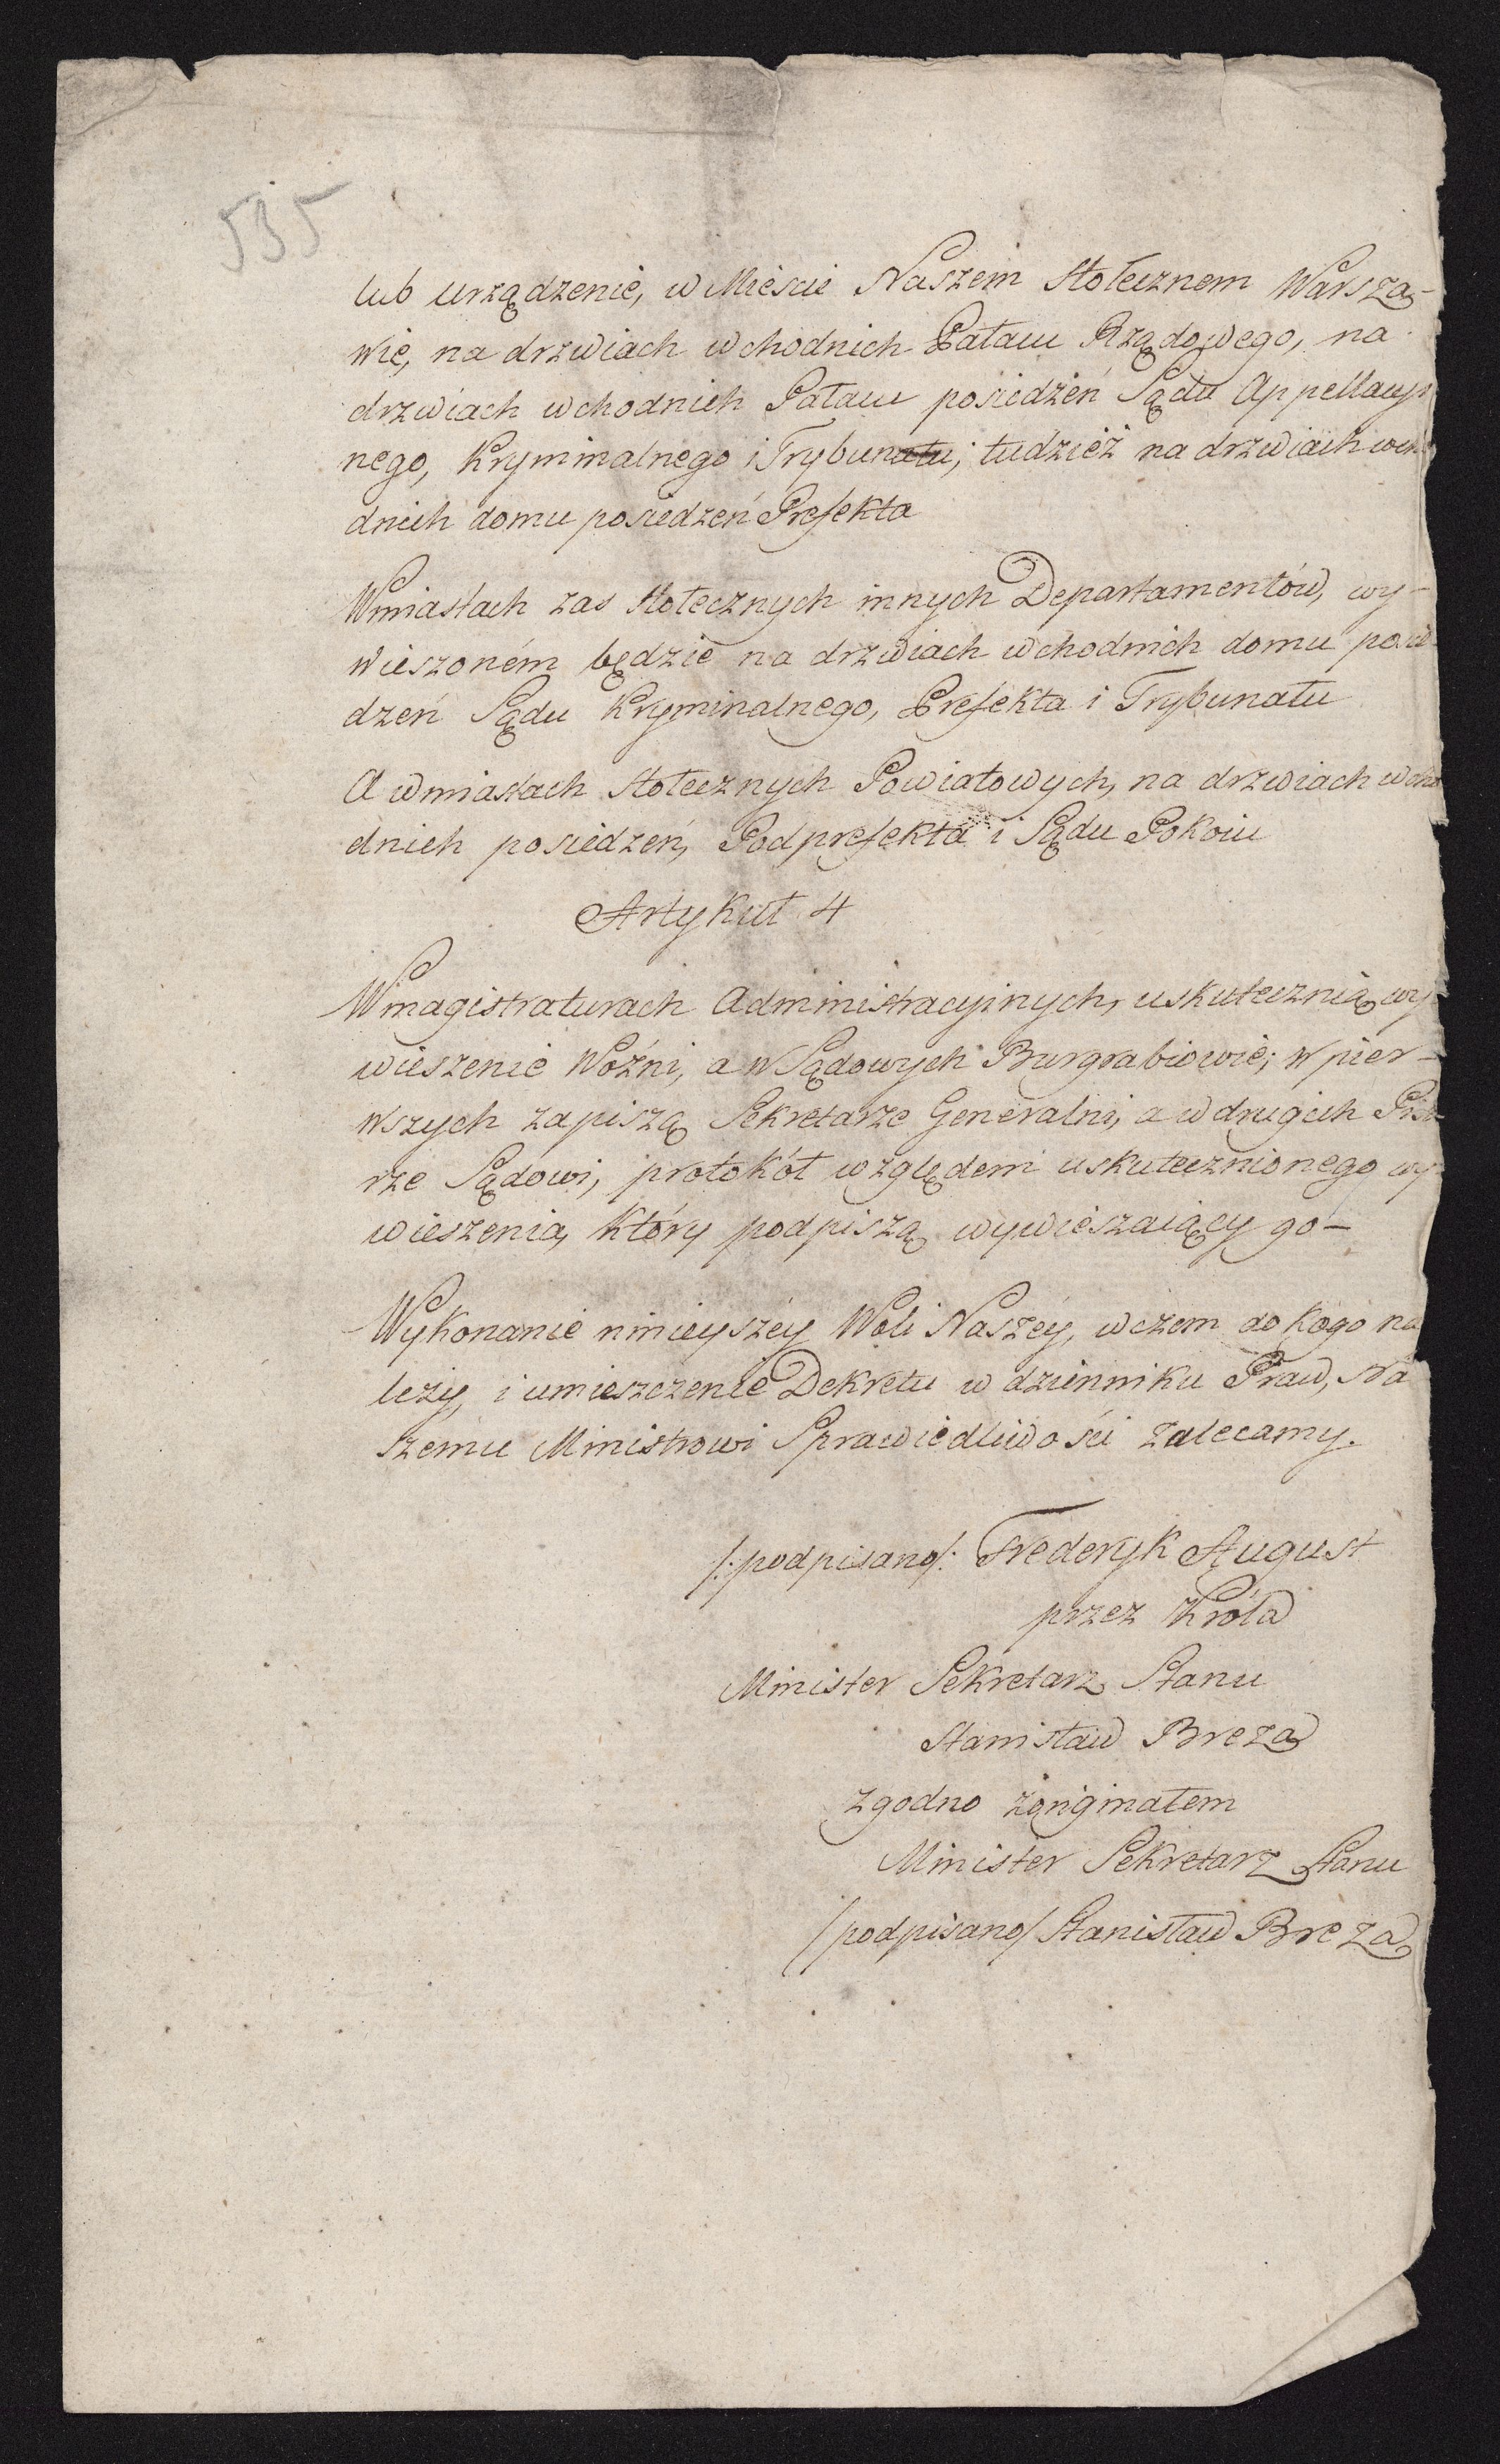 535
lub urządzenie, w Mieście Naszem Stołecznem Warsza-
wie, na drzwiach wchodnich Pałacu Rządowego, na
drzwiach wchodnich Pałacu posiedzeń Sądu Appellacyi
nego, Kryminalnego i Trybunału; tudzież na drzwiach wcho
dnich domu posiedzeń Prefekta
W miastach zas stołecznych innych Departamentów, wy-
wieszoném będzie na drzwiach wchodnich domu posie
dzeń Sądu Kryminalnego, Prefekta i Trybunału
A w miastach stołecznych Powiatowych, na drzwiach wcho
dnich posiedzeń, Podprefekta i Sądu Pokoiu
Artykuł 4
W magistraturach Administracyinych, uskutecznią wy
wieszenie Woźni, a w Sądowych Burgrabiowie; w pier-
wszych zapiszą Sekretarze Generalni, a w drugich Pisa
rze Sądowi, protokół względem uskutecznionego wy
wieszenia, który podpiszą wywieszaiący go-
Wykonanie ninieyszéy Woli Naszéy, w czem do kogo na
leży, i umieszczenie Dekretu w dzienniku Praw, Na
szemu Ministrowi Sprawiedliwości zalecamy.
/:podpisano/: Frederyk August
przez Króla
Minister Sekretarz Stanu
Stanisław Breza
zgodno z originałem
Minister Sekretarz Stanu
/podpisano/ Stanisław Breza